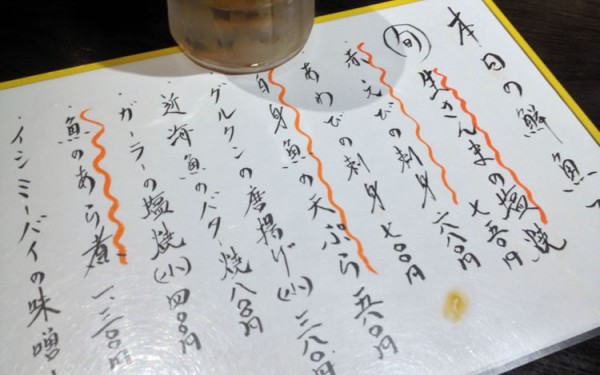 本日の鮮魚
旬 生さんまの塩焼 七五〇円
赤えびの刺身 六八〇円
あわびの刺身 七〇〇円
白身魚の天ぷら 五八〇円
グルクンの唐揚げ(小) 三八〇円
近海魚のバター焼 八〇〇円
ガーラーの塩焼(小) 四〇〇円
魚のあら煮 一、三〇〇円
イシミーバイの味噌